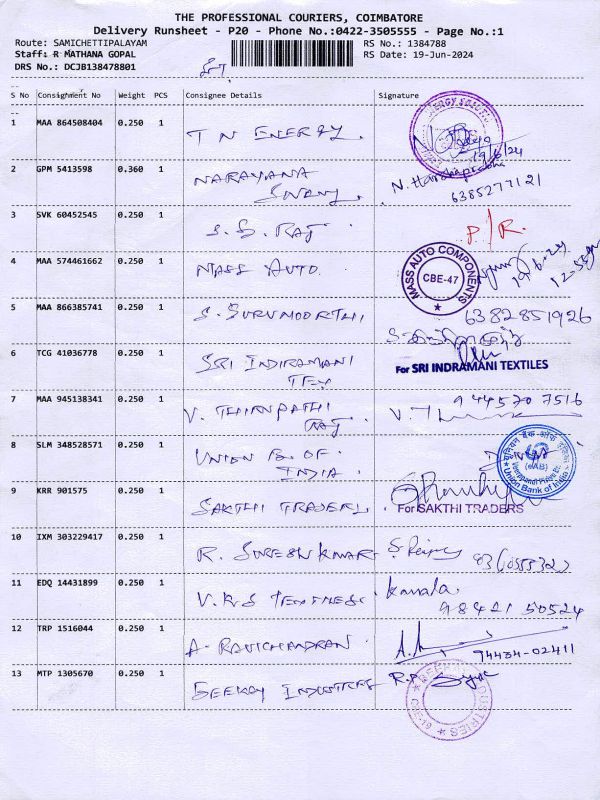 THE PROFESSIONAL COURIERS, COIMBATORE
Delivery Runsheet - P20 - Phone No.:0422-3505555 - Page No.:1
Route: SAMICHETTIPALAYAM
RS No.: 1384788
Staff: R MATHANA GOPAL
RS Date: 19-Jun-2024
DRS No.: DCJB138478801
S No Consighment No Weight PCS Consignee Details Signature
1 MAA 864508404 0.250 1 T N ENERGY.
19/6/24
2 GPM 5413598 0.360 1 NARAYANA
SWAMY.
N. Hariniprabha
6385277121
3 SVK 60452545 0.250 1 S. S. RAJ P/R.
4 MAA 574461662 0.250 1 MASS AUTO.
MASS AUTO COMPONENTS
CBE-47
5 MAA 866385741 0.250 1 S. GURUMOORTHI 6382851926
6 TCG 41036778 0.250 1 SRI INDIRAMANI
TEX
For SRI INDRAMANI TEXTILES
7 MAA 945138341 0.250 1 V. THIRUPATHI
RAJ
9 44570 7516
8 SLM 348528571 0.250 1 UNION B. OF
INDIA.
यूनियन बैंक ऑफ इंडिया
(eAB)
Union Bank of India
9 KRR 901575 0.250 1 SAKTHI TRADERS.
For SAKTHI TRADERS
10 IXM 303229417 0.250 1 R. SURESH KUMAR
11 EDQ 14431899 0.250 1 V.R.S TEXTILES. Kamala.
98421 50524
12 TRP 1516044 0.250 1 A- RAVICHANDRAN.
94434-02411
13 MTP 1305670 0.250 1 GEEKAY INDUSTRIES R.P